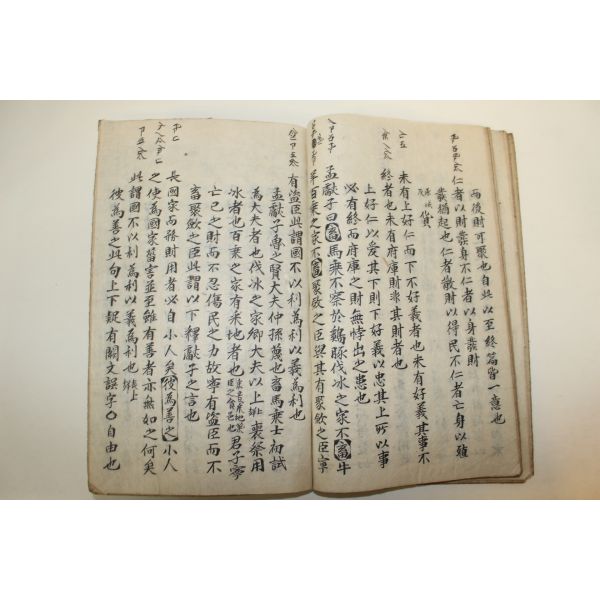 而後財可聚也自此以至終篇皆一意也
仁者以財發身不仁者以身發財
發猶起也仁者散財以得民不仁者亡身以殖
貨
未有上好仁而下不好義者也未有好義其事不
終者也未有府庫財非其財者也
上好仁以愛其下則下好義以忠其上所以事
必有終而府庫之財無悖出之患也
孟獻子曰畜馬乘不察於鷄豚伐冰之家不畜牛
羊百乘之家不畜聚斂之臣與其有聚斂之臣寧
有盜臣此謂國不以利為利以義為利也
孟獻子魯之賢大夫仲孫蔑也畜馬乘士初試
為大夫者也伐冰之家卿大夫以上喪祭用
冰者也百乘之家有采地者也君子寧
亡己之財而不忍傷民之力故寧有盜臣而不
畜聚斂之臣此謂以下釋獻子之言也
長國家而務財用者必自小人矣彼為善之小人
之使為國家菑害並至雖有善者亦無如之何矣
此謂國不以利為利以義為利也
彼為善之此句上下疑有闕文誤字〇自由也